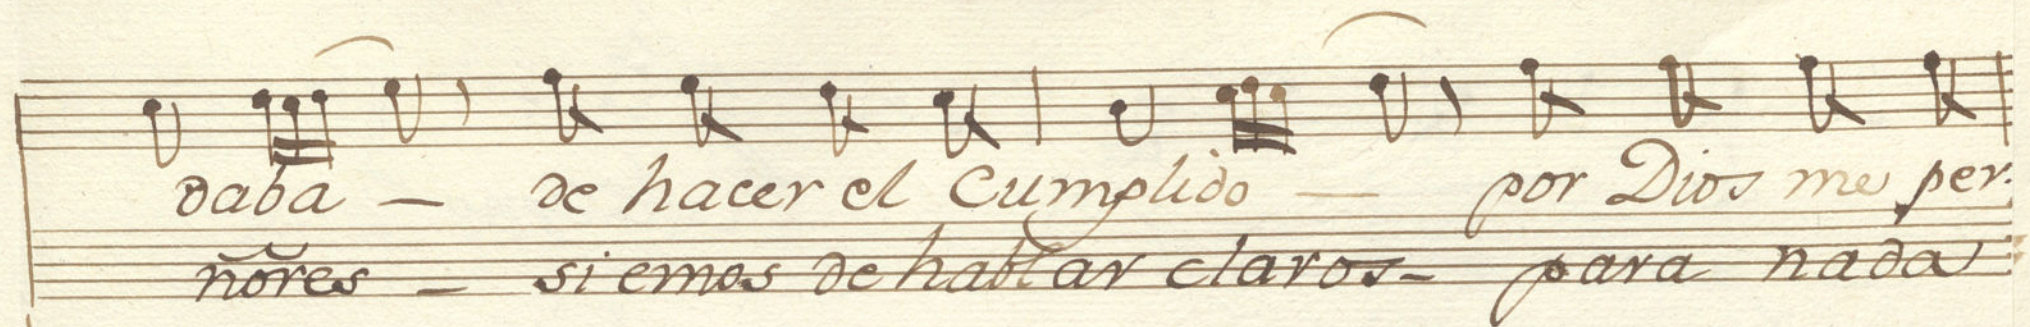 daba - de hacer el Cumplido - por Dios me per.
ñores - si emos de hablar claros - para nada